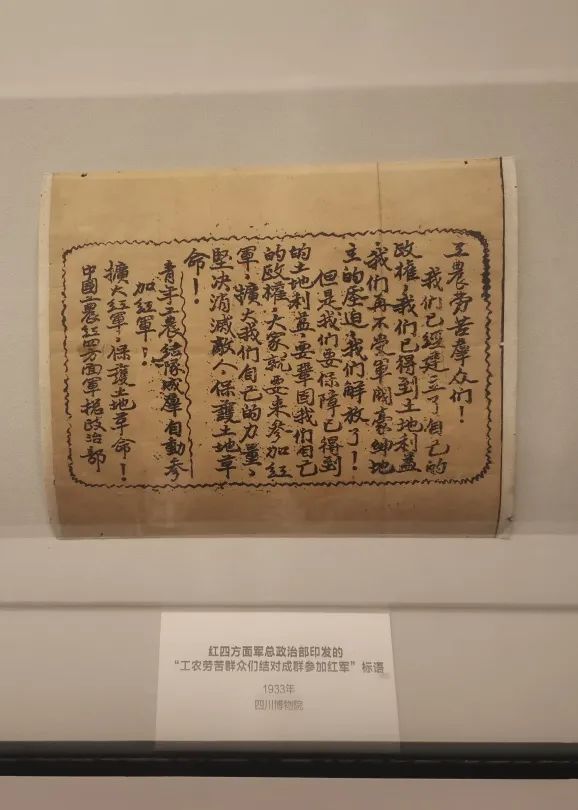 工農劳苦羣众们！
我们已經建立了自己的
政權，我们已得到土地利益
，我们再不受軍阀豪紳地
主的压迫，我们解放了！
但是我们要保障已得到
的土地利益，要鞏固我们自己
的政權，大家就要来参加红
軍，擴大我们自己的力量，
坚决消滅敵人，保護土地革
命！
青年工農結隊成羣自動参
加红軍！
擴大红軍，保護土地革命！
中國工農红四方面軍总政治部
红四方面军总政治部印发的
“工农劳苦群众们结对成群参加红军”标语
1933年
四川博物院